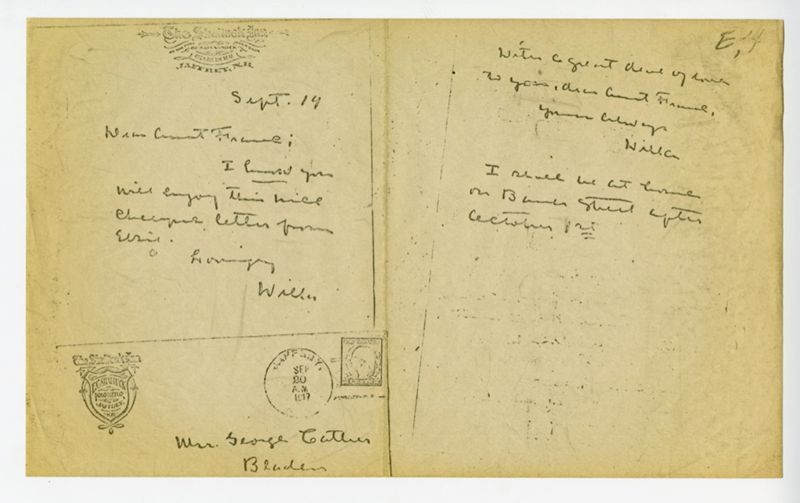 The Shattuck Inn
JAFFREY, N.H.
Sept. 19
Dear Aunt Franc;
I know you
will enjoy this nice
letter from
Elsie.
Lovingly
Willa
The Shattuck Inn
E.C. SHATTUCK
JAFFREY,
SEP
20
A.M.
1917
Mrs. George Cather
Bladen
E,
With a great deal of love
to you, dear Aunt Franc,
Yours always
Willa
I shall be at home
on Bank Street after
October 1st